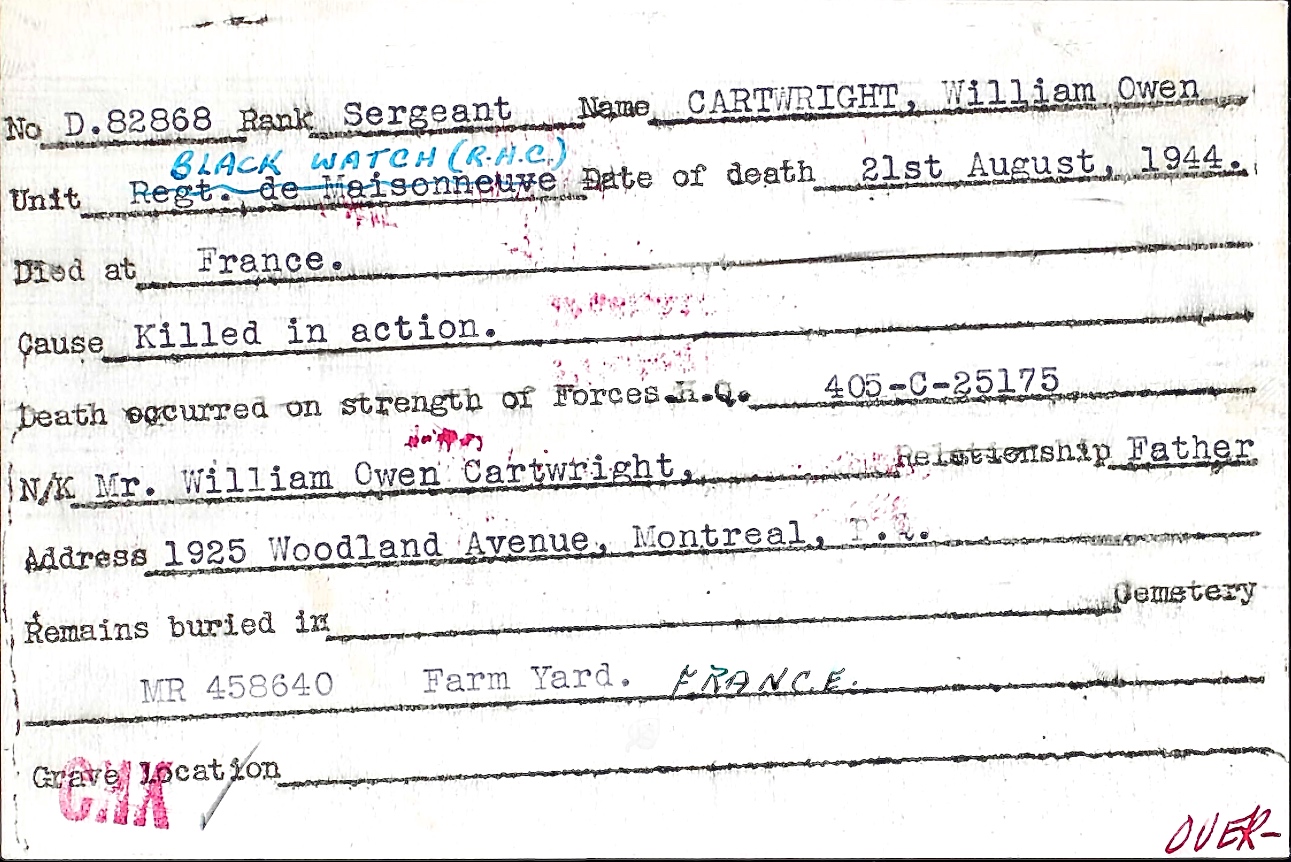 No D.82868 Rank Sergeant Name CARTWRIGHT, William Owen
BLACK WATCH (R.H.C.)
Unit Regt. de Maisonneuve Date of death 21st August, 1944.
Died at France.
Cause Killed in action.
Death occurred on strength of Forces.H.Q. 405-C-25175
N/K Mr. William Owen Cartwright, Relationship Father
Address 1925 Woodland Avenue, Montreal, P.Q.
Remains buried in Cemetery
MR 458640 Farm Yard. FRANCE.
Grave location
CHK
OVER-